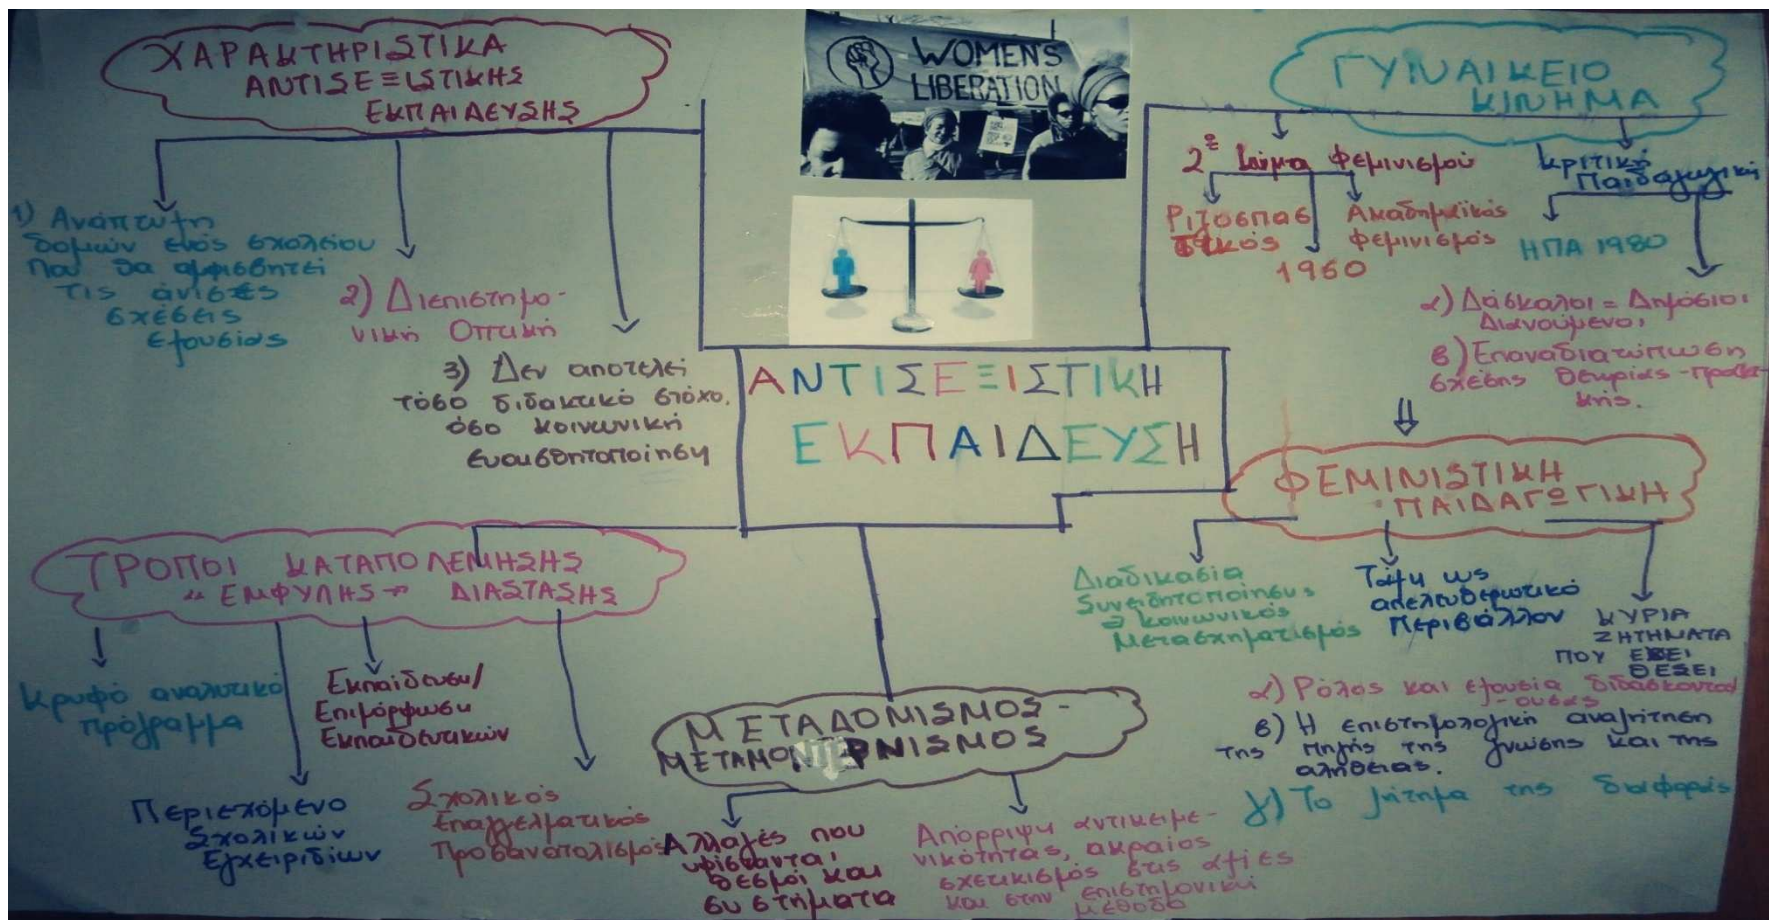 ΧΑΡΑΚΤΗΡΙΣΤΙΚΑ
ΑΝΤΙΣΕΞΙΣΤΙΚΗΣ
ΕΚΠΑΙΔΕΥΣΗΣ
1) Ανάπτυξη
δομών ενός σχολείου
που θα αμφισβητεί
τις άνισες
σχέσεις
εξουσίας
2) Διεπιστημο-
νική Οπτική
3) Δεν αποτελεί
τόσο διδακτικό στόχο,
όσο κοινωνική
ευαισθητοποίηση
WOMEN'S
LIBERATION
ΓΥΝΑΙΚΕΙΟ
ΚΙΝΗΜΑ
2ο Κύμα Φεμινισμού
Ριζοσπασ
τικός
1960
Ακαδημαϊκός
Φεμινισμός
Κριτική
Παιδαγωγική
ΗΠΑ 1980
α) Δάσκαλοι = Δημόσιοι
Διανοούμενοι
β) Επαναδιατύπωση
σχέσης θεωρίας-πρακτι-
κής.
ΑΝΤΙΣΕΞΙΣΤΙΚΗ
ΕΚΠΑΙΔΕΥΣΗ
ΦΕΜΙΝΙΣΤΙΚΗ
ΠΑΙΔΑΓΩΓΙΚΗ
Διαδικασία
Συνειδητοποίησης
κοινωνικός
Μετασχηματισμός
Τάξη ως
απελευθερωτικό
Περιβάλλον
ΚΥΡΙΑ
ΖΗΤΗΜΑΤΑ
ΠΟΥ ΕΧΕΙ
ΘΕΣΕΙ
α) Ρόλος και εξουσία διδάσκοντα/
-ουσας
β) Η επιστημολογική αναζήτηση
της πηγής της γνώσης και της
αλήθειας.
γ) Το ζήτημα της διαφοράς
ΤΡΟΠΟΙ ΚΑΤΑΠΟΛΕΜΗΣΗΣ
"ΕΜΦΥΛΗΣ" ΔΙΑΣΤΑΣΗΣ
Κρυφό αναλυτικό
πρόγραμμα
Περιεχόμενο
Σχολικών
Εγχειριδίων
Εκπαίδευση/
Επιμόρφωση
Εκπαιδευτικών
Σχολικός
Επαγγελματικός
Προσανατολισμός
ΜΕΤΑΔΟΜΙΣΜΟΣ-
ΜΕΤΑΜΟΝΤΕΡΝΙΣΜΟΣ
Αλλαγές που
υφίστανται
θεσμοί και
συστήματα
Απόρριψη αντικειμε-
νικότητας, ακραίος
σχετικισμός στις αξίες
και στην επιστημονική
μέθοδο